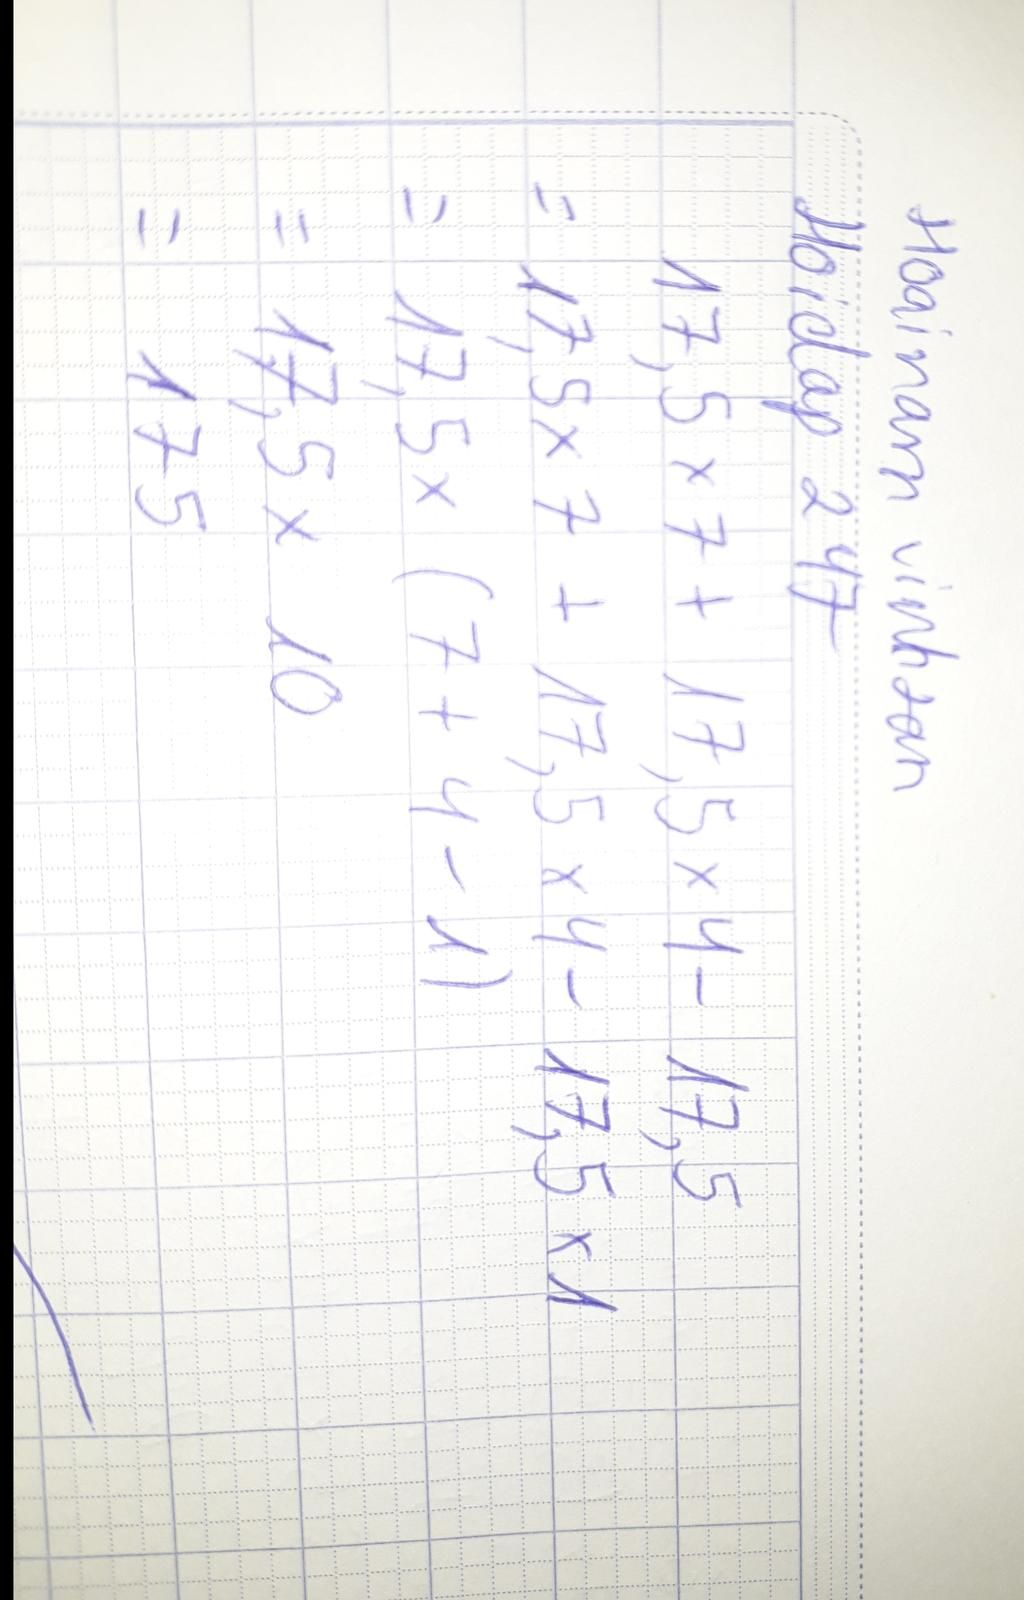 Hoainam vinhtan
Hoidap 247
17,5 x 7 + 17,5 x 4 - 17,5
= 17,5 x 7 + 17,5 x 4 - 17,5 x 1
= 17,5 x (7 + 4 - 1)
= 17,5 x 10
= 175